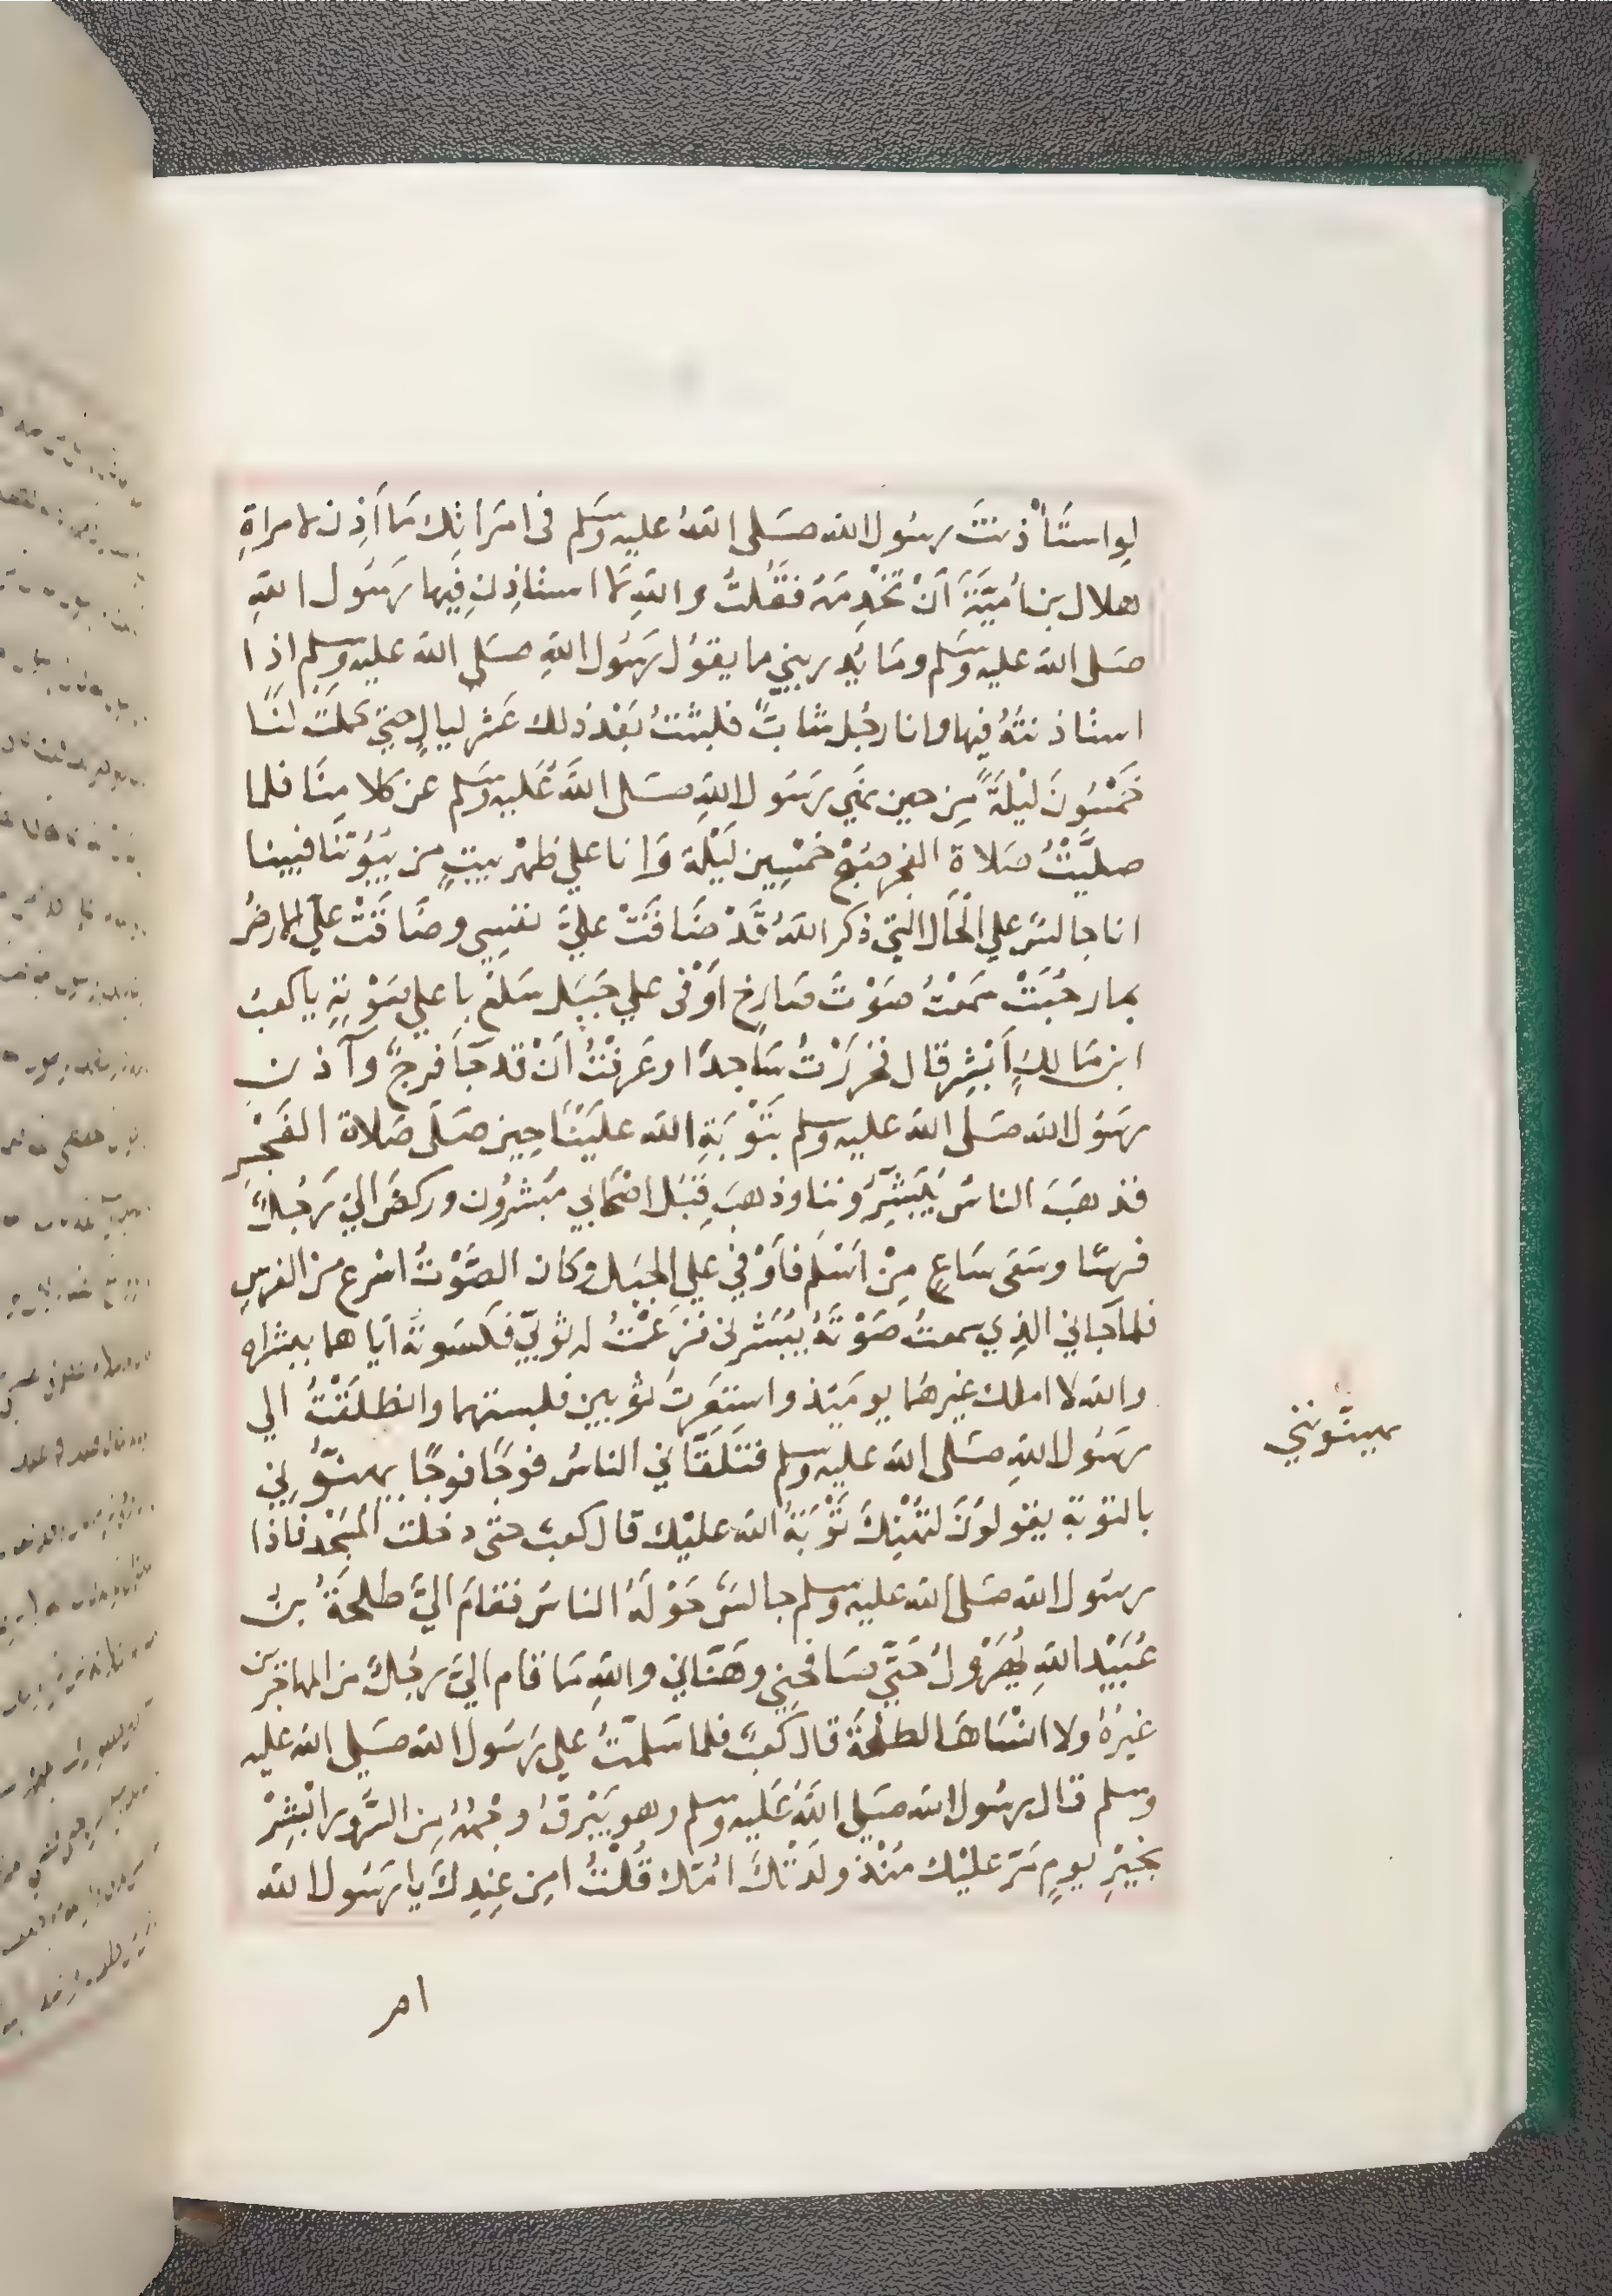 لِو استَأْذنتَ رسُول الله صَلى اللهُ عليه وسَلم فى امرَاتِك كما أَذِن لامراةِ
هلال بن أُميَّةَ أنْ تخْدِمَهُ فقُلتُ والله لا استاذِن فِيها رسُول اللهِ
صَلى الله عليه وسَلم ومَا يُدريني ما يقوُل رسُول اللهِ صَلى الله عليه وسلم اذِا
استاذنتُهُ فيها وانا رجُل شابٌّ فلبثتُ بَعْد ذلك عَشر ليالٍ حتي كملَتْ لنَا
خمْسُونَ ليْلةً مِن حين نهَي رسَول اللهِ صَلى اللهُ عَليه وسَلم عن كلامِنَا فلما
صليَّتْ صَلاة الفجر صبْحَ خمْسِين ليْلة وَانا علي ظهْر بيتٍ من بيُوتنَا فبينا
انا جالسٌ علي الْحَال التي ذكر اللهُ قَدْ ضَاقَتْ عليَّ نفسِي وضَاقَتْ عليَّ الارضُ
بما رحُبَتْ سَمعْتُ صَوْتَ صَارخ اَوْفى علي جَبَل سَلعْ باعلي صَوْتِهِ يا كعبُ
ابن مَالكٍ أَبْشِر قال فخرَرْتُ سَاجدًا وعَرفْتُ اَنْ قد جَا فرجٌ وآذن
رسُول الله صَلَى الله عليه وسلم بتَوْبَةِ الله عليْنَا حِين صَلَى صَلاة الفَجْر
فذهَبَ الناسُ يُبَشِّرُوننا وذهبَ قِبَل اصْحَابي مُبَشرُون وركضَ اليَّ رَجُلٌ
فرسًا وسَعَى سَاعٍ مِنْ اَسْلم فاَوْفي علي الجبَل وكان الصَّوْتُ اسْرع من الفرسِ
فلما جَاني الذِي سمعتُ صَوْتَهُ يُبَشرنى نزَعْتُ له ثوبيّ فكسَوتهُ اياهما ببشراه
والله لا املك غيرهُما يومَيئذ واستعَرتُ ثوْبين فلبستهما وانطلقْتُ الي
رسُول اللهِ صَلى الله عليه وسلم فتَلقَّاني الناسُ فوجًا فوجًا يهنّوُنِي
بالتوبَة يقولوُنَ لتهْنِكَ تَوْبَةُ الله عليْك قال كعبٌ حتى دخلت المسْجد فاذا
رسُول الله صَلى الله عليه وسلم جالسٌ حَوْلهُ الناسُ فقامَ اليَّ طلحَةُ بن
عُبَيْد اللهِ يُهَرْوِلُ حَتَّي صَافحَنِي وهَنَّاني واللهِ مَا قام اليَّ رجُلٌ من المهاجرين
غيرُهُ ولا انْسَاهَا لطلْحَةَ قال كعبٌ فلما سَلمْتُ علي رسُول الله صَلي الله عليه
وسلم قال رسُول الله صَلي اللهُ عَليه وسلم وهو يَبْرقُ وجْهُهُ مِن السُّرور ابْشِرْ
بخيْرِ يومٍ مَرّ عليْك منْذ ولدَتْكَ امّك قُلْتُ امِن عِندِكَ يا رسُول الله
يهنّونني
امر